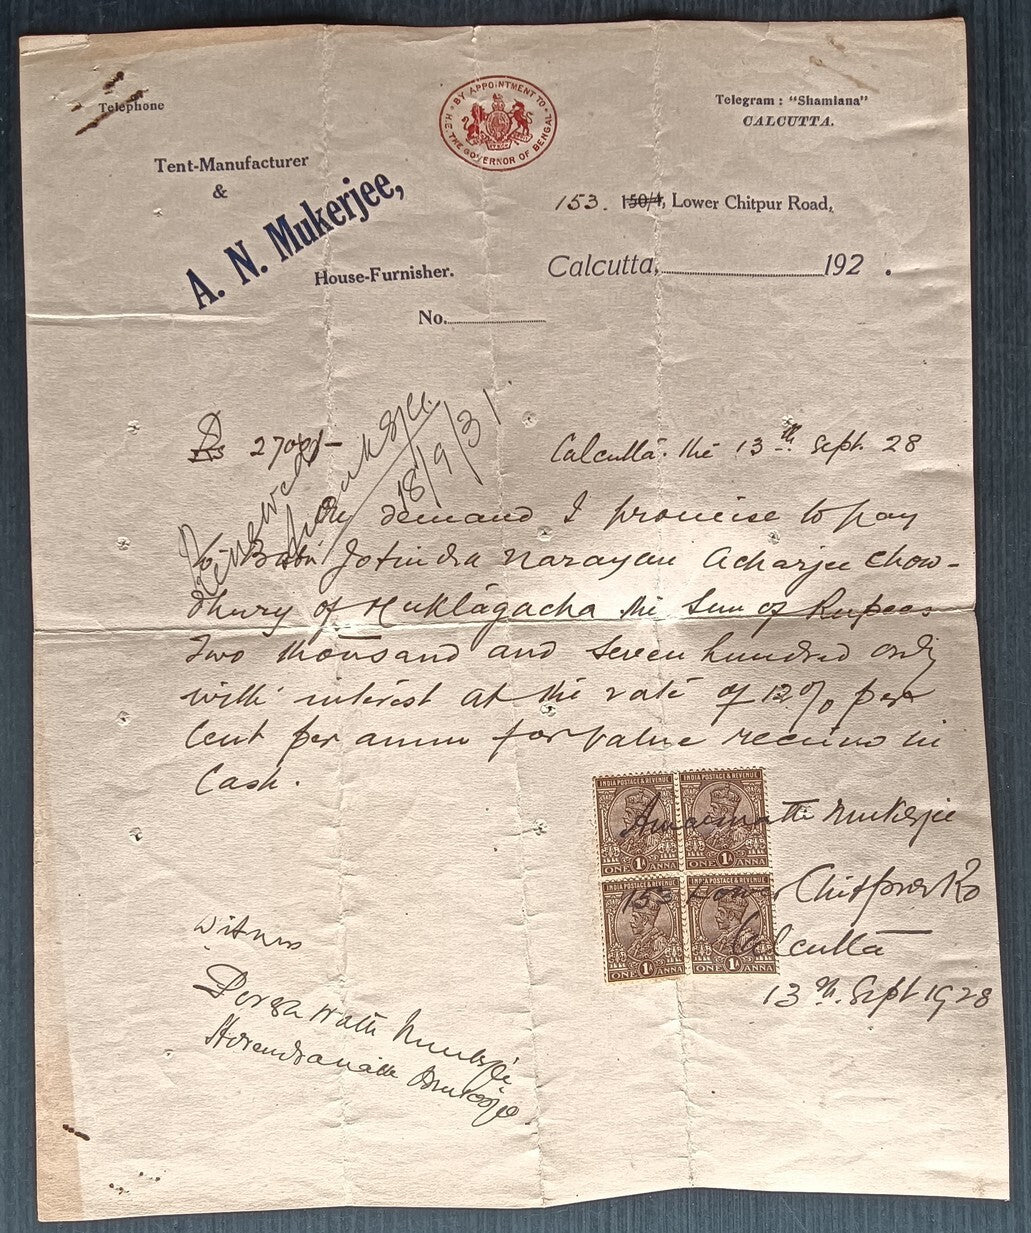 Telephone
BY APPOINTMENT TO
H.E. THE GOVERNOR OF BENGAL
Telegram : "Shamiana"
CALCUTTA.
Tent-Manufacturer
&
A. N. Mukerjee,
House-Furnisher.
153. 150/1, Lower Chitpur Road,
Calcutta, 192 .
No.
Rs 2700/-
Calcutta. the 13th Sept. 28
Renewed
18/9/31
On demand I promise to pay
to Babu Jotindra Narayan Acharjee Chow-
dhury of Muktagacha the Sum of Rupees
Two thousand and Seven hundred only
with interest at the rate of 12% per
Cent per annum for value received in
Cash.
INDIA POSTAGE & REVENUE INDIA POSTAGE & REVENUE
Amarnath Mukerjee
1A 1A
ONE ANNA ONE ANNA
INDIA POSTAGE & REVENUE INDIA POSTAGE & REVENUE
153 Lower Chitpore Rd
Calcutta
1A 1A
ONE ANNA ONE ANNA
13th. Sept 1928
Witness